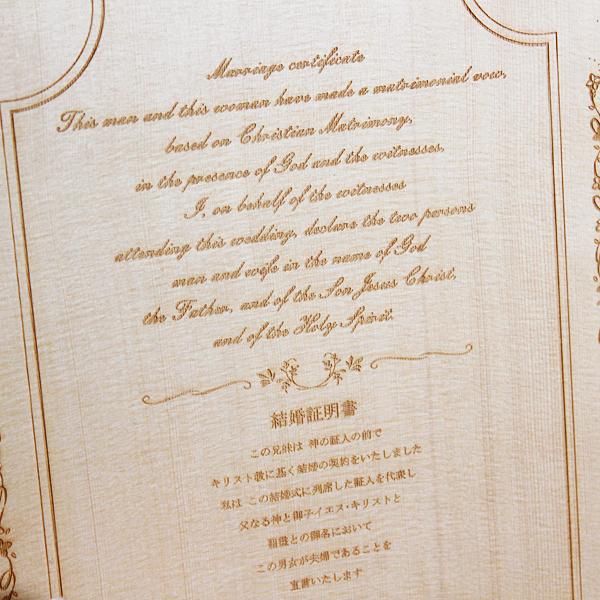 Marriage certificate
This man and this woman have made a matrimonial vow,
based on Christian Matrimony,
in the presence of God and the witnesses.
I, on behalf of the witnesses
attending this wedding, declare the two persons
man and wife in the name of God
the Father, and of the Son Jesus Christ,
and of the Holy Spirit.
結婚証明書
この兄姉は 神の証人の前で
キリスト教に基く結婚の契約をいたしました
私は この結婚式に列席した証人を代表し
父なる神と御子イエス・キリストと
聖霊との御名において
この男女が夫婦であることを
宣言いたします